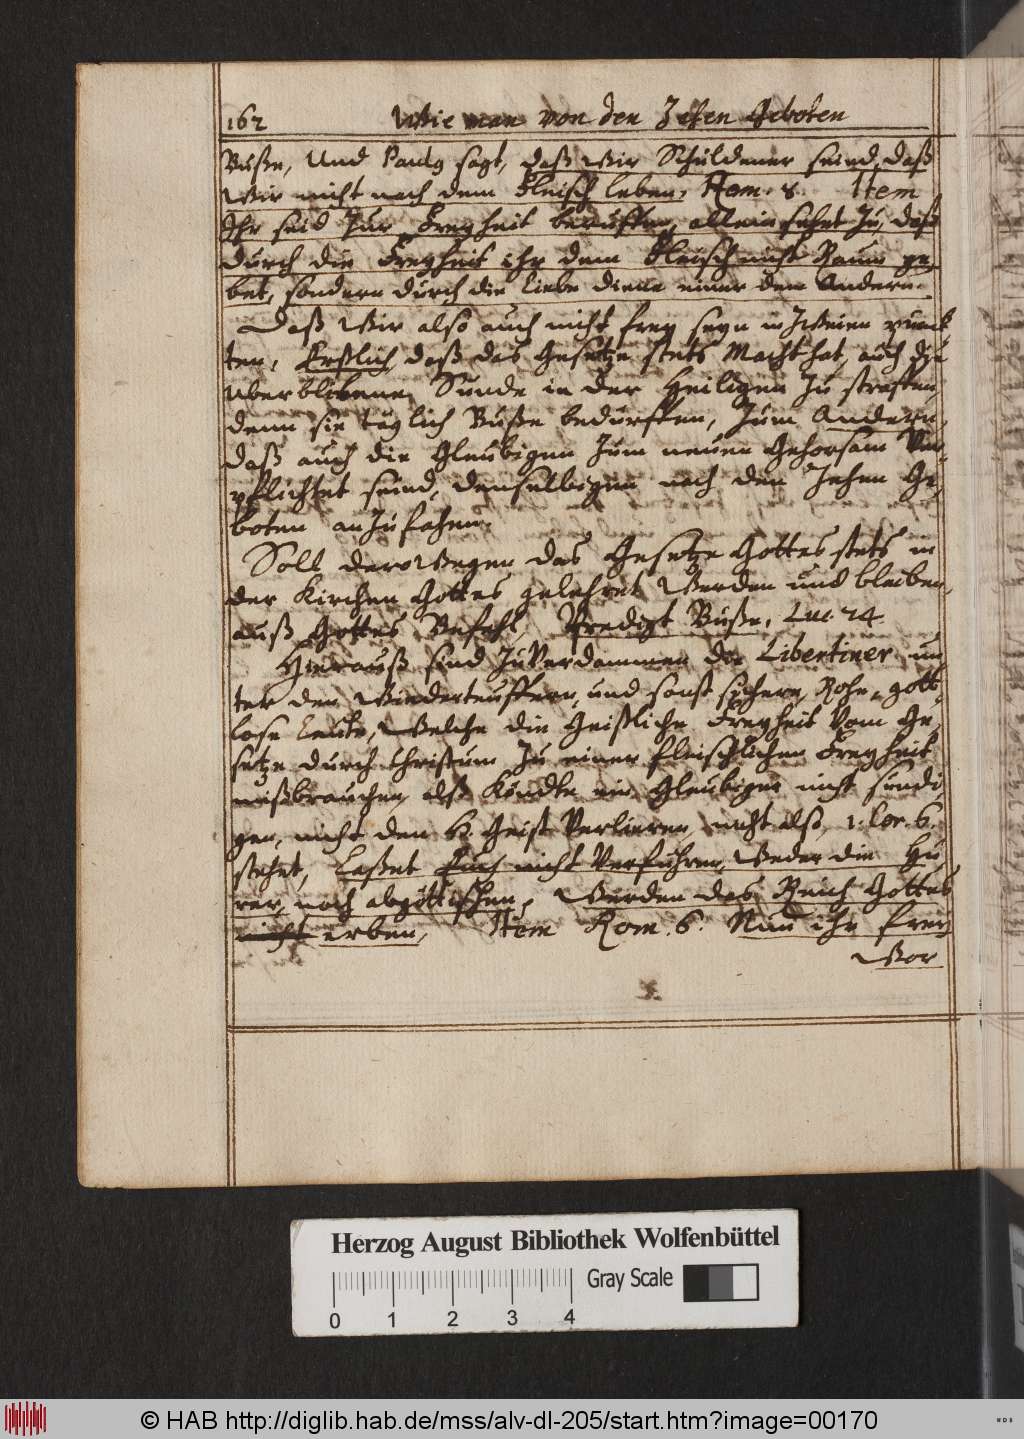 162 Wie man von den Zehen Geboten
Buße, Und Paulus sagt, daß Wir Schuldener seind, daß
Wir nicht nach dem Fleisch leben, Rom. 8. Item
Ihr seid Zur Freyheit beruffen, allein sehet Zu, daß
durch die Freyheit ihr dem Fleisch nicht Raum ge,
bet, sondern durch die Liebe diene einer dem Andern.
Daß Wir also auch nicht frey seyn in Zweien punck
ten, Erstlich, daß das Gesetze stets Macht hat, auch die
uberblibene Sunde in der Heiligen Zu straffen,
denn sie täglich Buße bedurffen, Zum Andern,
daß auch die Gleubigen Zum neuen Gehorsam Ver-
pflichtet seind, denselbigen nach den Zehen Ge,
boten anzufahen.
Soll derowegen das Gesetze Gottes stets in
der Kirchen Gottes gelehret Werden und bleiben,
auß Gottes Befehl, Predigt Buße, Luc. 24.
Hierauß sind Zu Verdammen die Libertiner un
ter den Wiederteuffern, und sonst sichere, Rohe, gott,
lose Leute, Welche die Geistliche Freyheit Vom Ge,
setze durch Christum Zu einer fleischlichen Freyheit
mißbrauchen, alß Köndte ein Gleubiger nicht sündi
gen, nicht den H. Geist Verlieren, nicht alß 1. Cor. 6.
stehet, Laßet Euch nicht Verführen, Weder die Hu,
rer, noch abgöttischen, Werden das Reich Gottes
nicht erben, Item Rom. 6. Nun ihr frey
Wor
Herzog August Bibliothek Wolfenbüttel
Gray Scale
0 1 2 3 4
© HAB http://diglib.hab.de/mss/alv-dl-205/start.htm?image=00170